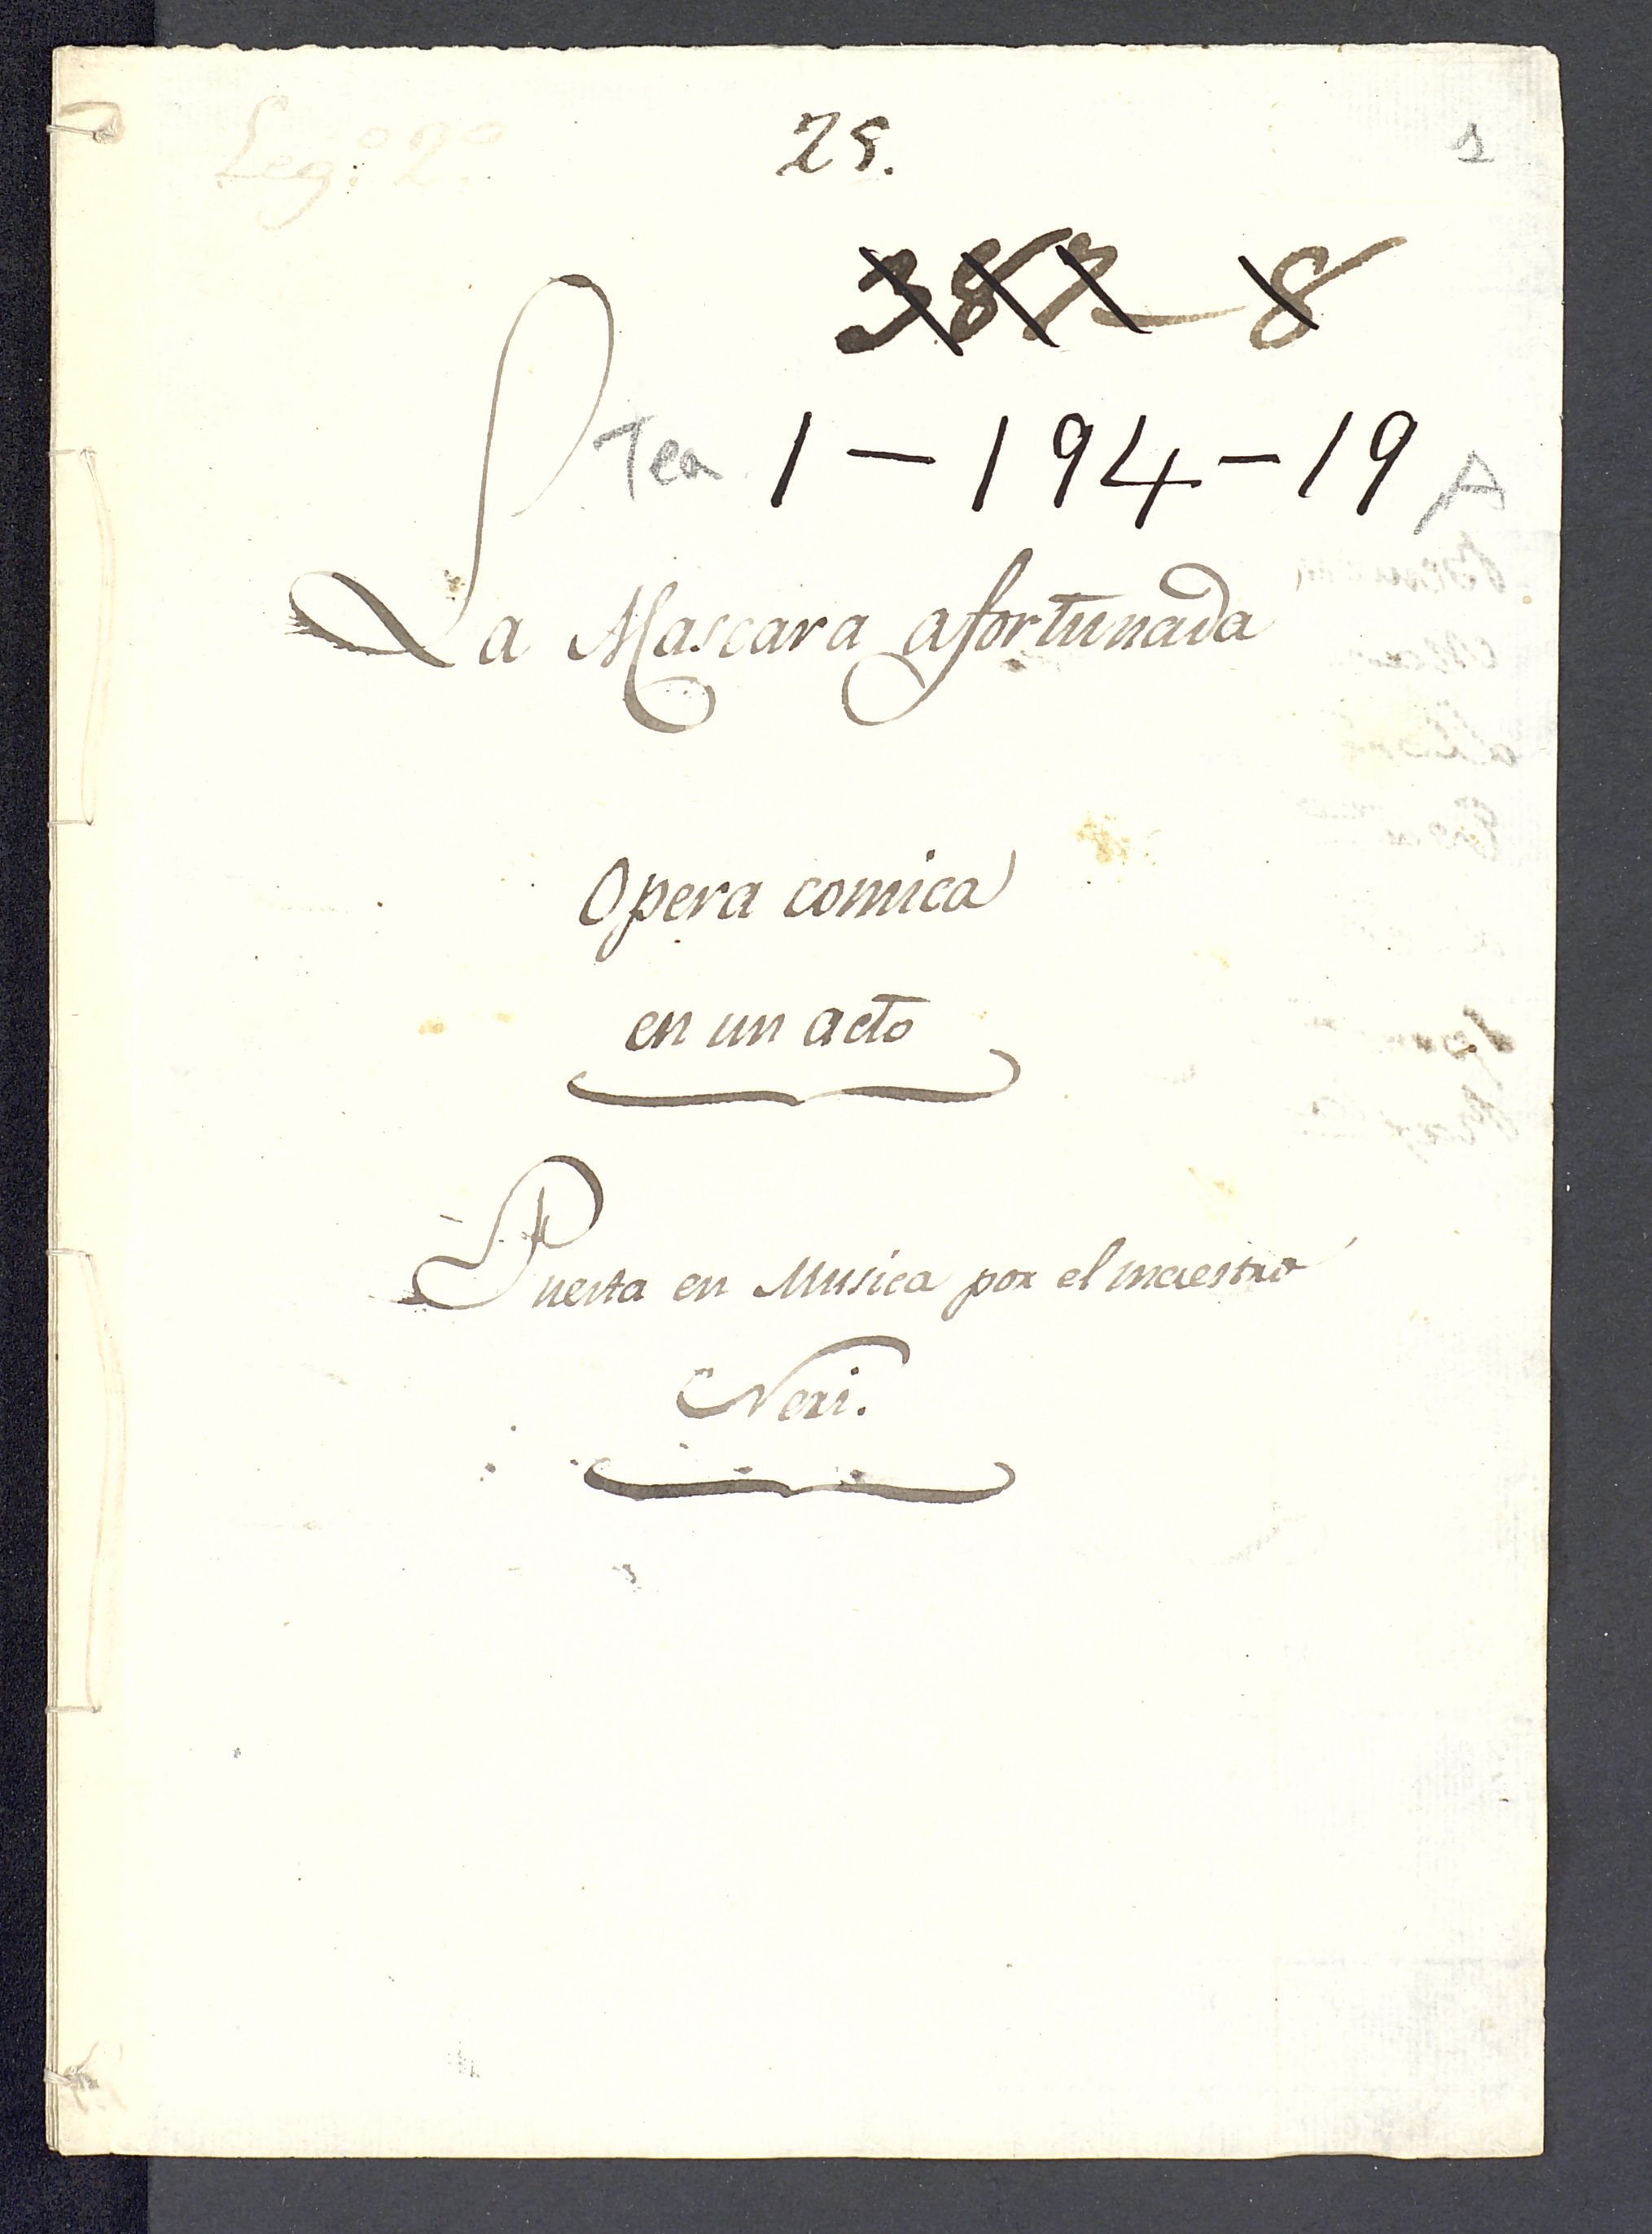 Leg.º 2º
25.
1
387-8
Tea 1-194-19 A
La Mascara afortunada
Opera comica
en un acto
Puesta en Musica por el maestro
Neri.